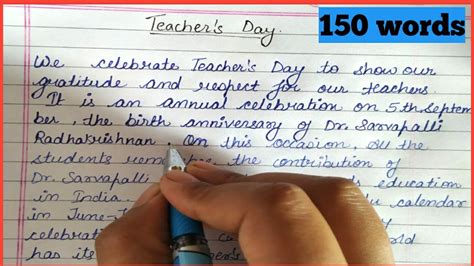 150 words
Teacher's Day.
We celebrate Teacher's Day to show our
gratitude and respect for our teachers.
It is an annual celebration on 5th Septem
ber, the birth anniversary of Dr. Sarvapalli
Radhakrishnan. On this occasion, all the
students the contribution of
Dr. Sarvapalli education
in India. calendar
in June-
celebrati
has its